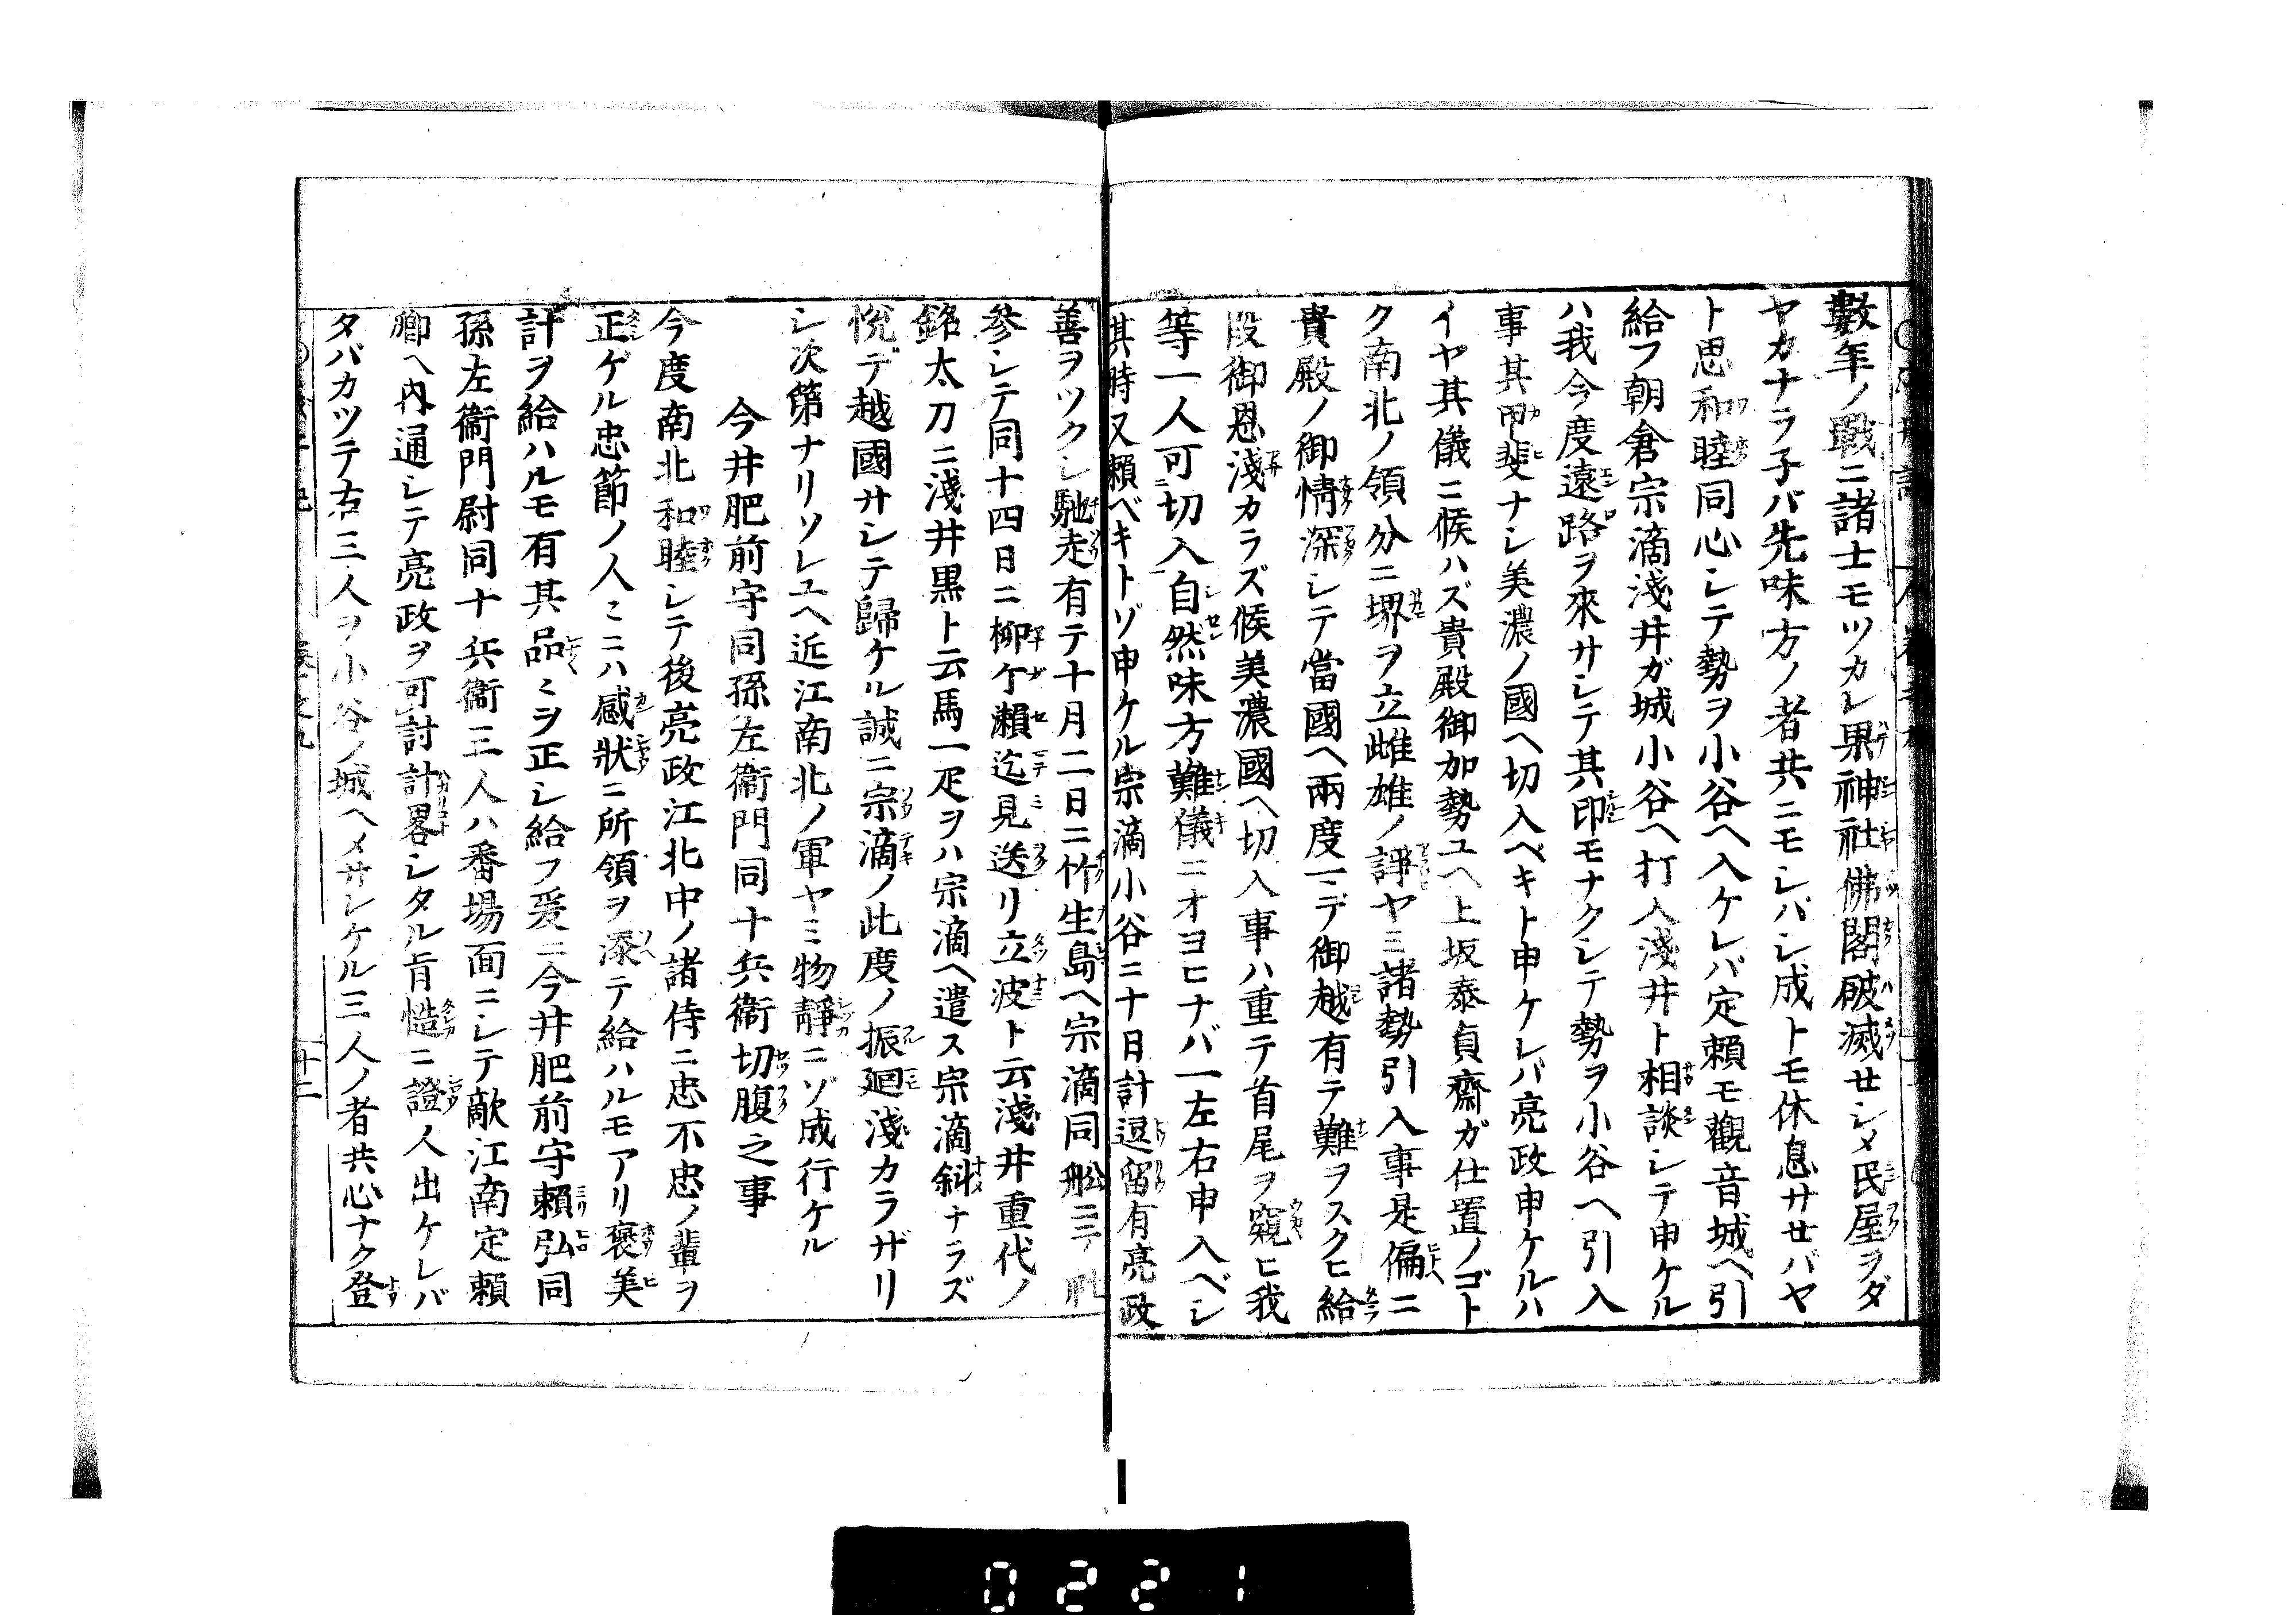 數年ノ戰ニ諸士モツカレ果神社佛閣破滅セシメ民屋ヲダ
ヤカナラ子バ先味方ノ者共ニモシバシ成トモ休息サセバヤ
ト思和睦同心シテ勢ヲ小谷ヘ入ケレバ定賴モ觀音城ヘ引
給フ朝倉宗滴淺井ガ城小谷ヘ打入淺井ト相談シテ申ケル
ハ我今度遠路ヲ來サレテ其印モナクシテ勢ヲ小谷ヘ引入
事其甲斐ナシ美濃ノ國ヘ切入ベキト申ケレバ亮政申ケルハ
イヤ其儀ニ候ハズ貴殿御加勢ユヘ上坂泰貞齋ガ仕置ノゴト
ク南北ノ領分ニ堺ヲ立雌雄ノ諍ヤミ諸勢引入事是偏ニ
貴殿ノ御情深シテ當國ヘ兩度ニテ御越有テ難ヲスクヒ給
段御恩淺カラズ候美濃國ヘ切入事ハ重テ首尾ヲ窺ヒ我
等一人可切入自然味方難儀ニオヨヒナバ一左右申入ベシ
其時又賴ベキトゾ申ケル宗滴小谷ニ十日計逗留有亮政
善ヲツクシ馳走有テ十月二日ニ竹生島ヘ宗滴同舩ニテ
參シテ同十四日ニ柳ケ瀨迄見送リ立波ト云淺井重代ノ
銘太刀ニ淺井黒ト云馬一疋ヲハ宗滴ヘ遣ス宗滴斜ナラズ
悅デ越國サシテ歸ケル誠ニ宗滴ノ此度ノ振廻淺カラザリ
シ次第ナリソレユヘ近江南北ノ軍ヤミ物靜ニゾ成行ケル
今井肥前守同孫左衞門同十兵衞切腹之事
今度南北和睦シテ後亮政江北中ノ諸侍ニ忠不忠ノ輩ヲ
正ケル忠節ノ人ミニハ感狀ニ所領ヲ添テ給ハルモアリ褒美
計ヲ給ハルモ有其品ミヲ正シ給フ爰ニ今井肥前守賴弘同
孫左衞門尉同十兵衞三人ハ番場面ニシテ敵江南定賴
卿ヘ內通シテ亮政ヲ可討計畧シタル旨慥ニ證人出ケレバ
タバカツテ右三人ヲ小谷ノ城ヘメサレケル三人ノ者共心ナク登
十二
0221